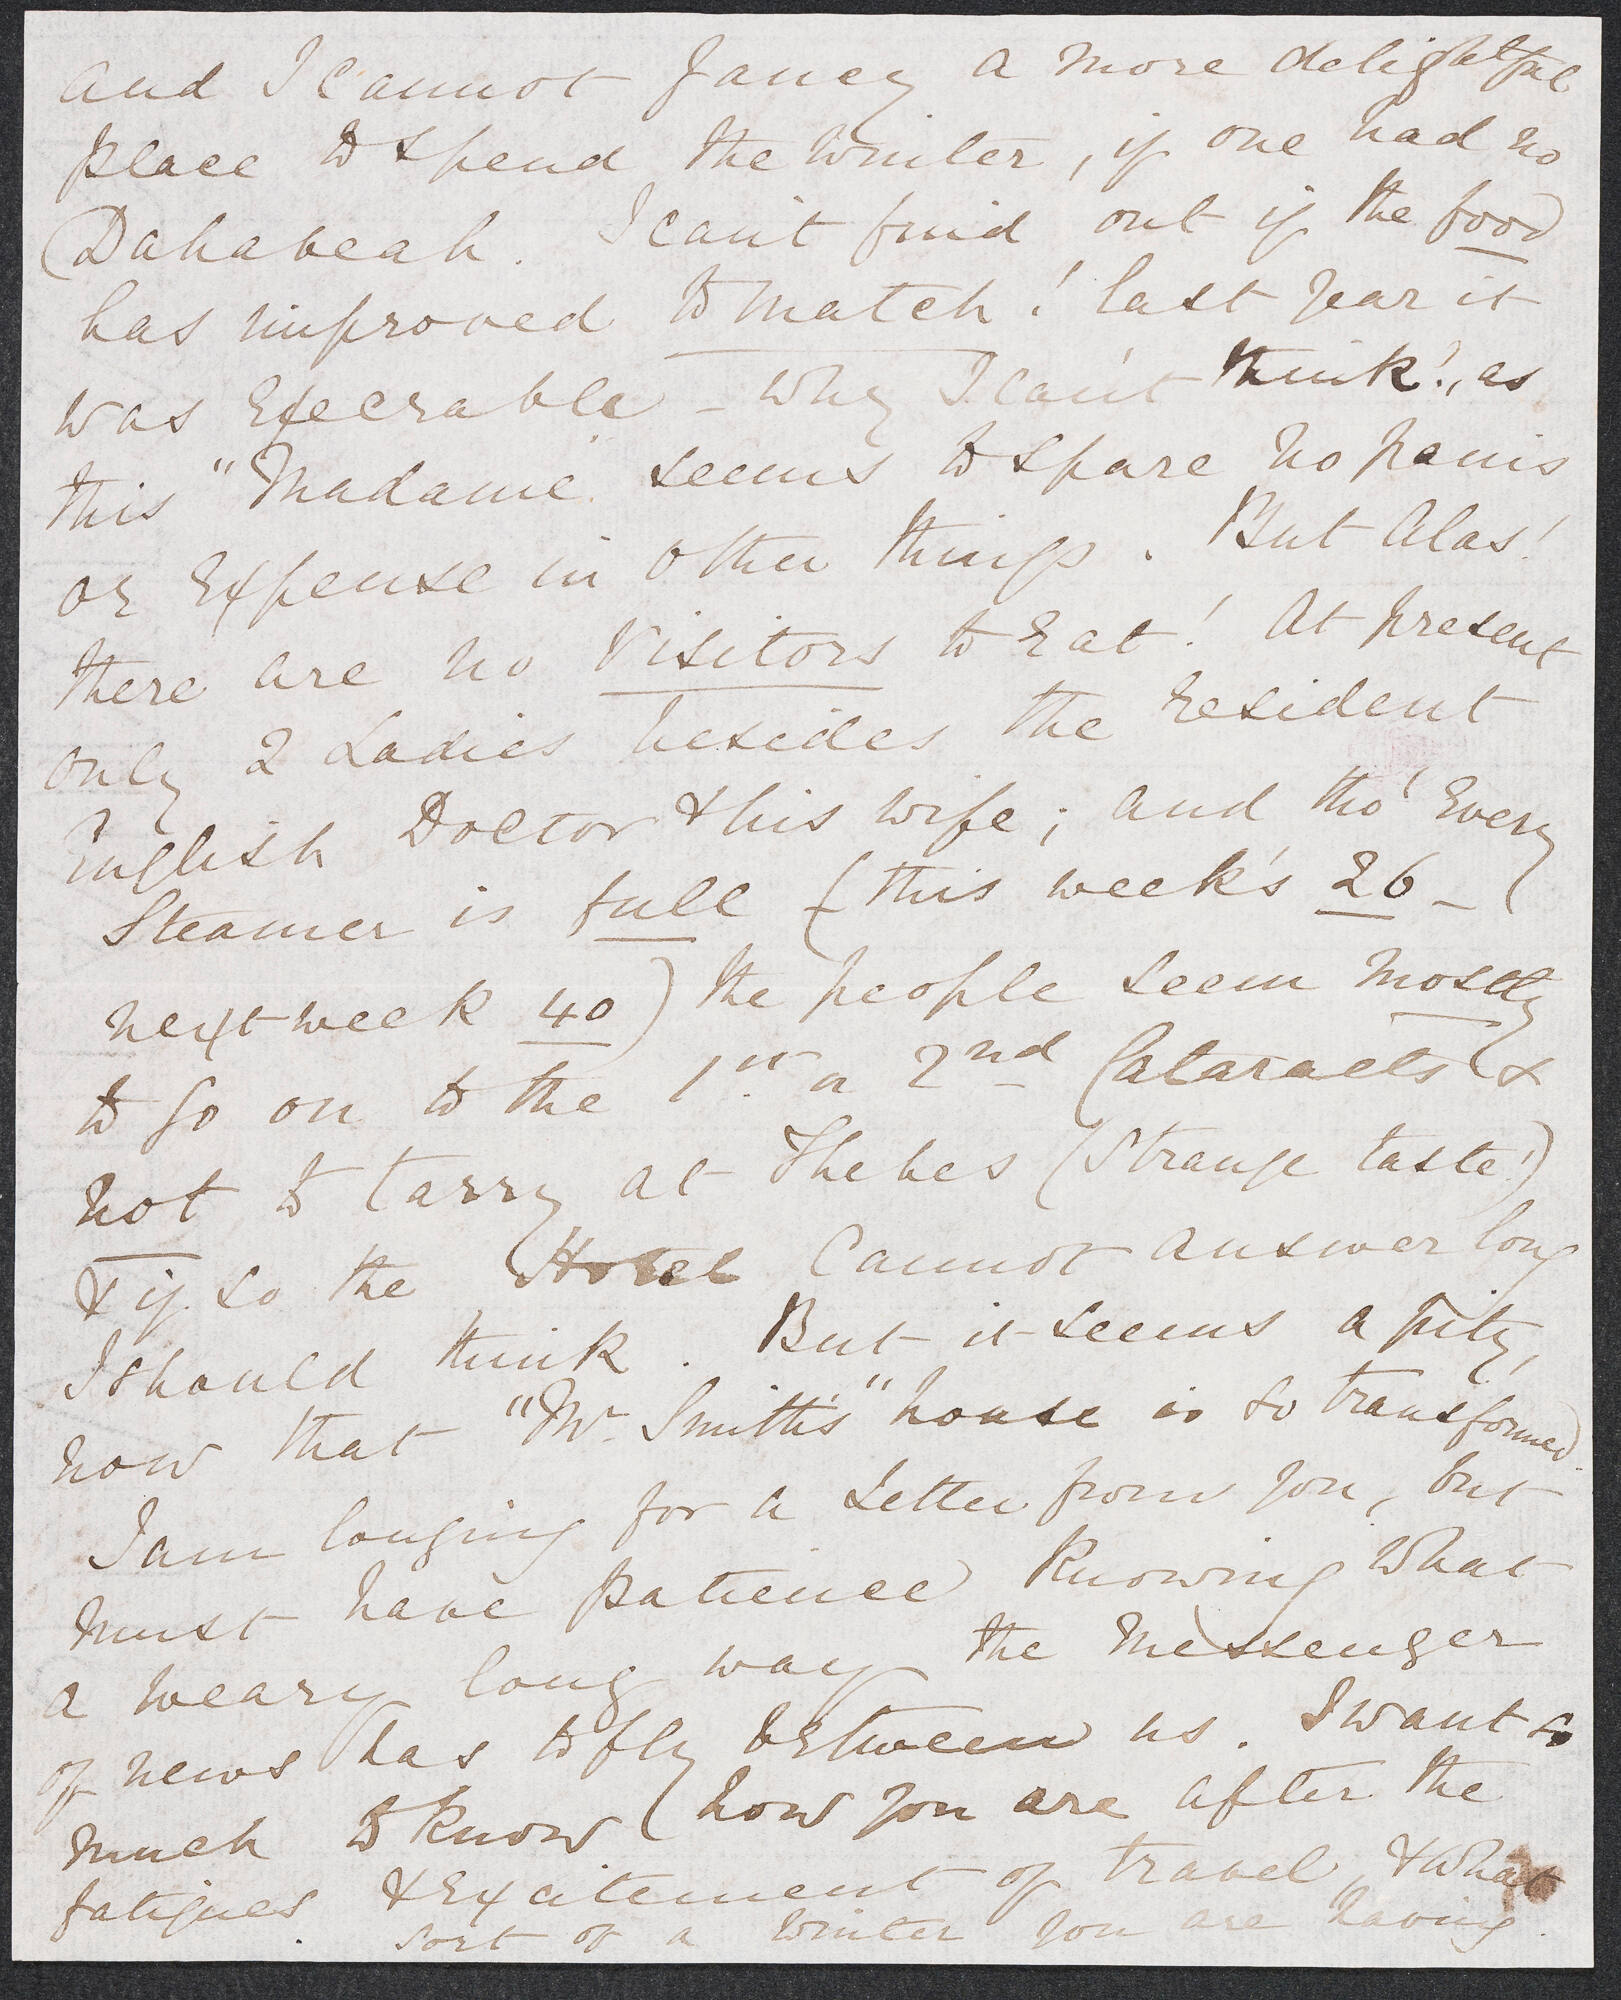 and I cannot fancy a more delightful
place to spend the winter, if one had no
Dahabeah. I can't find out if the food
has improved to match! last year it
was execrable - why I can't think!, as
this "Madame" seems to spare no pains
or expense in other things. But alas!
there are no Visitors to eat! At present
only 2 Ladies besides the resident
English Doctor & his wife; and tho' every
Steamer is full (this week's 26 -
next week 40) the people seem mostly
to go on to the 1st or 2nd Cataracts &
not to tarry at Thebes (Strange taste!)
& if so the Hotel cannot answer long
I should think. But it seems a pity,
now that "Mr. Smith's" house is so transformed.
I am longing for a Letter from you, but
must have patience knowing what
a weary long way the messenger
of news has to fly between us. I want so
much to know how you are after the
fatigues & excitement of travel, & what
sort of a winter you are having.